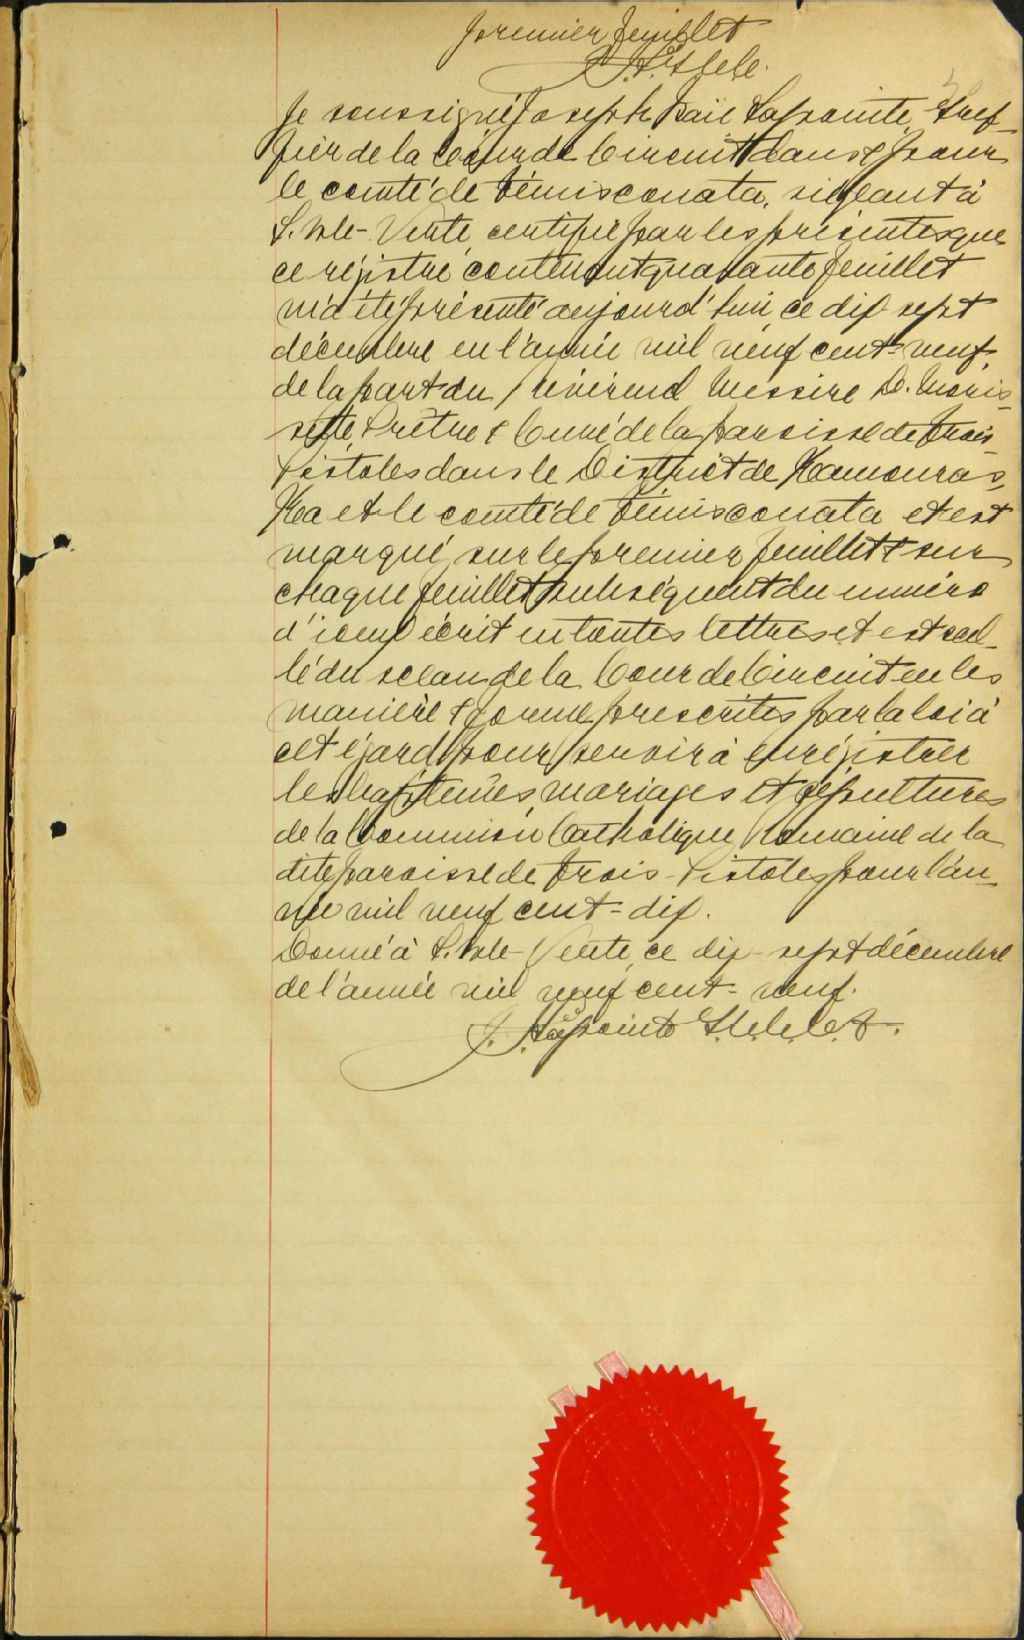 premier feuillet
Je soussigné Joseph Lapointe, Gref-
fier de la Cour de Circuit dans & pour
le comté de Témisconata, siégeant à
l'Isle-Verte, certifie par les présentes que
ce régistre contenant quarante feuillet
m'a été présenté aujourd'hui, ce dix sept
décembre en l'année mil neuf cent-neuf,
de la part du révérend Messire D. Moris-
sette, Prêtre & Curé de la paroisse de Trois-
Pistoles dans le District de Kamouras,
Ka et le comté de Témisconata et est
marqué sur le premier feuillet & sur
chaque feuillet subséquent du numéro
d'iceux écrit en toutes lettres et est scel-
lé du sceau de la Cour de Circuit en les
manière & forme prescrites par la loi à
cet égard pour servir à enrégistrer
les baptêmes mariages et sépultures
de la Communion Catholique Romaine de la
dite paroisse de Trois-Pistoles pour l'an-
née mil neuf cent-dix.
Donné à l'Isle-Verte, ce dix-sept décembre
de l'année mil neuf cent-neuf.
Lapointe G.C.C.C.T.